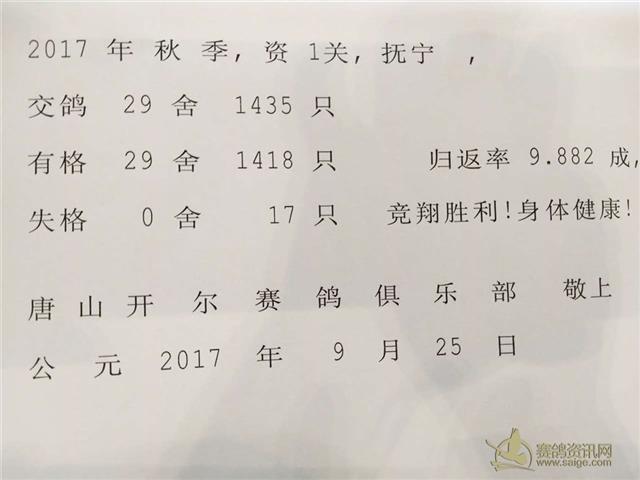 2017 年 秋 季, 资 1关, 抚宁 ,
交鸽 29 舍 1435 只
有格 29 舍 1418 只 归返率 9.882 成,
失格 0 舍 17 只 竞翔胜利!身体健康!
唐山开尔赛鸽俱乐部 敬上
公元 2017 年 9 月 25 日
赛鸽资讯网
www.saige.com